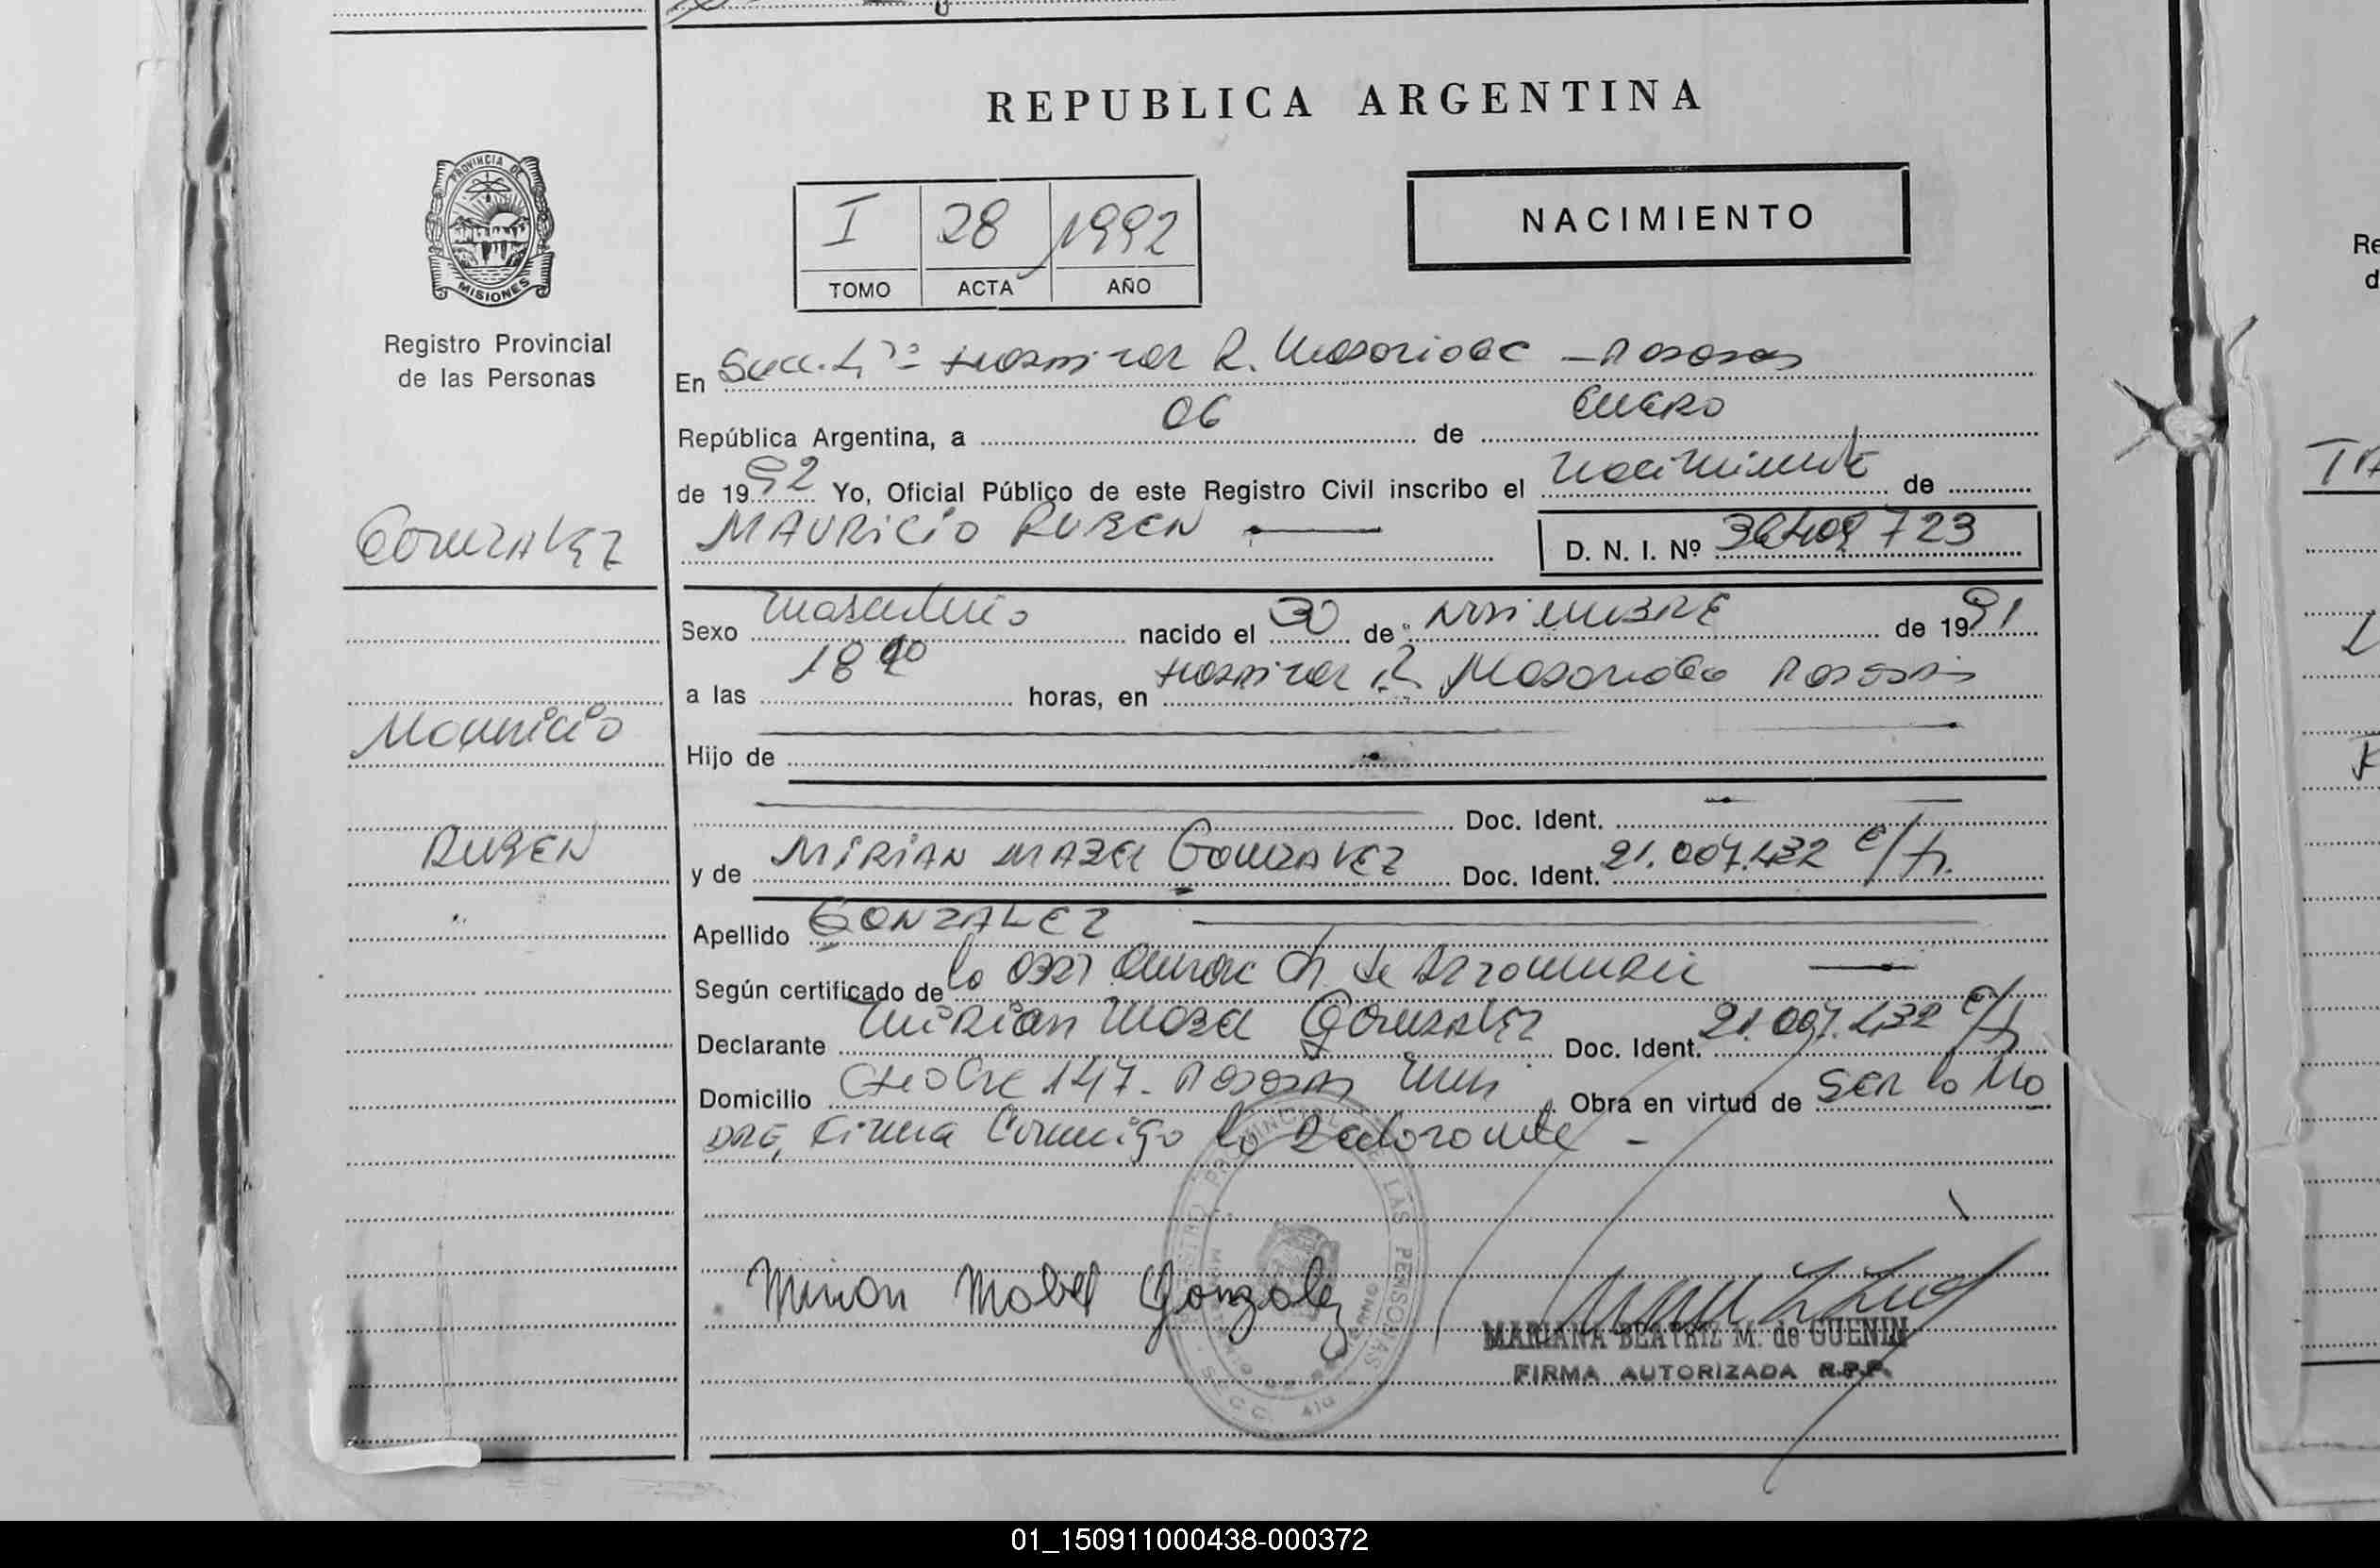 REPUBLICA ARGENTINA
PROVINCIA DE
MISIONES
Registro Provincial
de las Personas
I 28 1992
TOMO ACTA AÑO
NACIMIENTO
En Secc. 4ta Hospital R. Madariaga - Posadas
República Argentina, a 06 de Enero
de 1992 Yo, Oficial Público de este Registro Civil inscribo el nacimiento de
GONZALEZ
MAURICIO RUBEN
D. N. I. Nº 36409723
Sexo masculino nacido el 30 de NOVIEMBRE de 1991
a las 18 horas, en Hospital R. Madariaga Posadas
Mauricio
Hijo de
Doc. Ident.
RUBEN
y de MIRIAN MABEL GONZALEZ Doc. Ident. 21.007.432
Apellido GONZALEZ
Según certificado de la Obst. Ch. de
Declarante Mirian Mabel Gonzalez Doc. Ident. 21.007.432
Domicilio 147 - Posadas Mnes Obra en virtud de ser la Ma
dre, Firma Conmigo la Declarante -
Mirian Mabel Gonzalez
MARIANA BEATRIZ M. de GUENIN
FIRMA AUTORIZADA R.P.P.
01_150911000438-000372